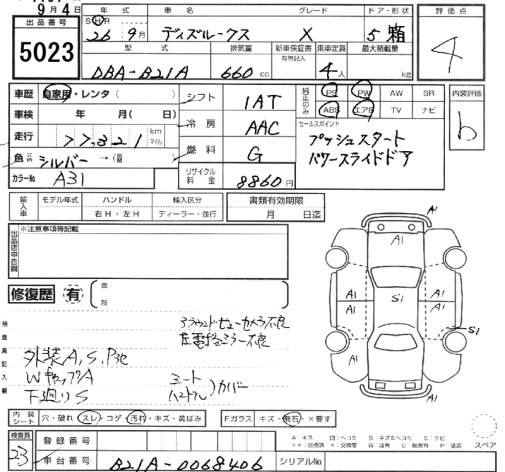 9月4日
出品番号 年式 車名 グレード ドア・形状 評価点
5023 26 9月 ディズルークス X 5 箱 4
型式 排気量 新車保証書 有無記入 乗車定員 最大積載量
DBA-B21A 660 cc 4人 kg
車歴 自家用・レンタ( ) シフト IAT 純正のみ PS PW AW SR 内装評価
車検 年 月( 日) 冷房 AAC ABS エアB TV ナビ b
走行 77,821 km マイル セールスポイント
色 シルバー → 燃料 G プッシュスタート
カラーNo A31 リサイクル料金 8860円 パワースライドドア
輸入車 モデル年式 ハンドル 輸入区分 書類有効期限
右H・左H ディーラー・並行 月 日迄
出品店申告欄 ※注意事項等記載
A1
A1 A1
修復歴 有 箇所
A1 A1 S1 A1
検査員記入欄 アラウンドビューカメラ不良
左電格ミラー不良 S1
外装A,S,P他
Wキップ A シート
下廻りS ハンドル)カバー
A1 A1
内装シート 穴・破れ スレ コゲ 汚れ・キズ・黄ばみ Fガラス キズ・飛石・×要す
検査員 登録番号 スペア
23 車台番号 B21A-0068406 シリアルNo